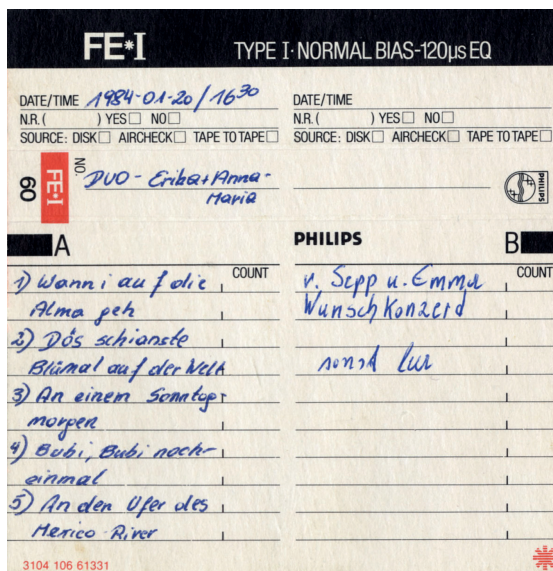 FE*I TYPE I·NORMAL BIAS-120µs EQ
DATE/TIME 1984-01-20/16³⁰
N.R. ( ) YES□ NO□
SOURCE: DISK□ AIRCHECK□ TAPE TO TAPE□
DATE/TIME
N.R. ( ) YES□ NO□
SOURCE: DISK□ AIRCHECK□ TAPE TO TAPE□
60 FE·I NO. DUO - Erika + Anna-
Maria
PHILIPS
A
COUNT
1) Wann i auf die
Alma geh
2) Dös schianste
Blümal auf der Welt
3) An einem Sonntag
morgen
4) Bubi, Bubi noch-
einmal
5) An den Ufer des
Mexico River
PHILIPS B
COUNT
v. Sepp u. Emma
Wunsch Konzerd
sonst
3104 106 61331